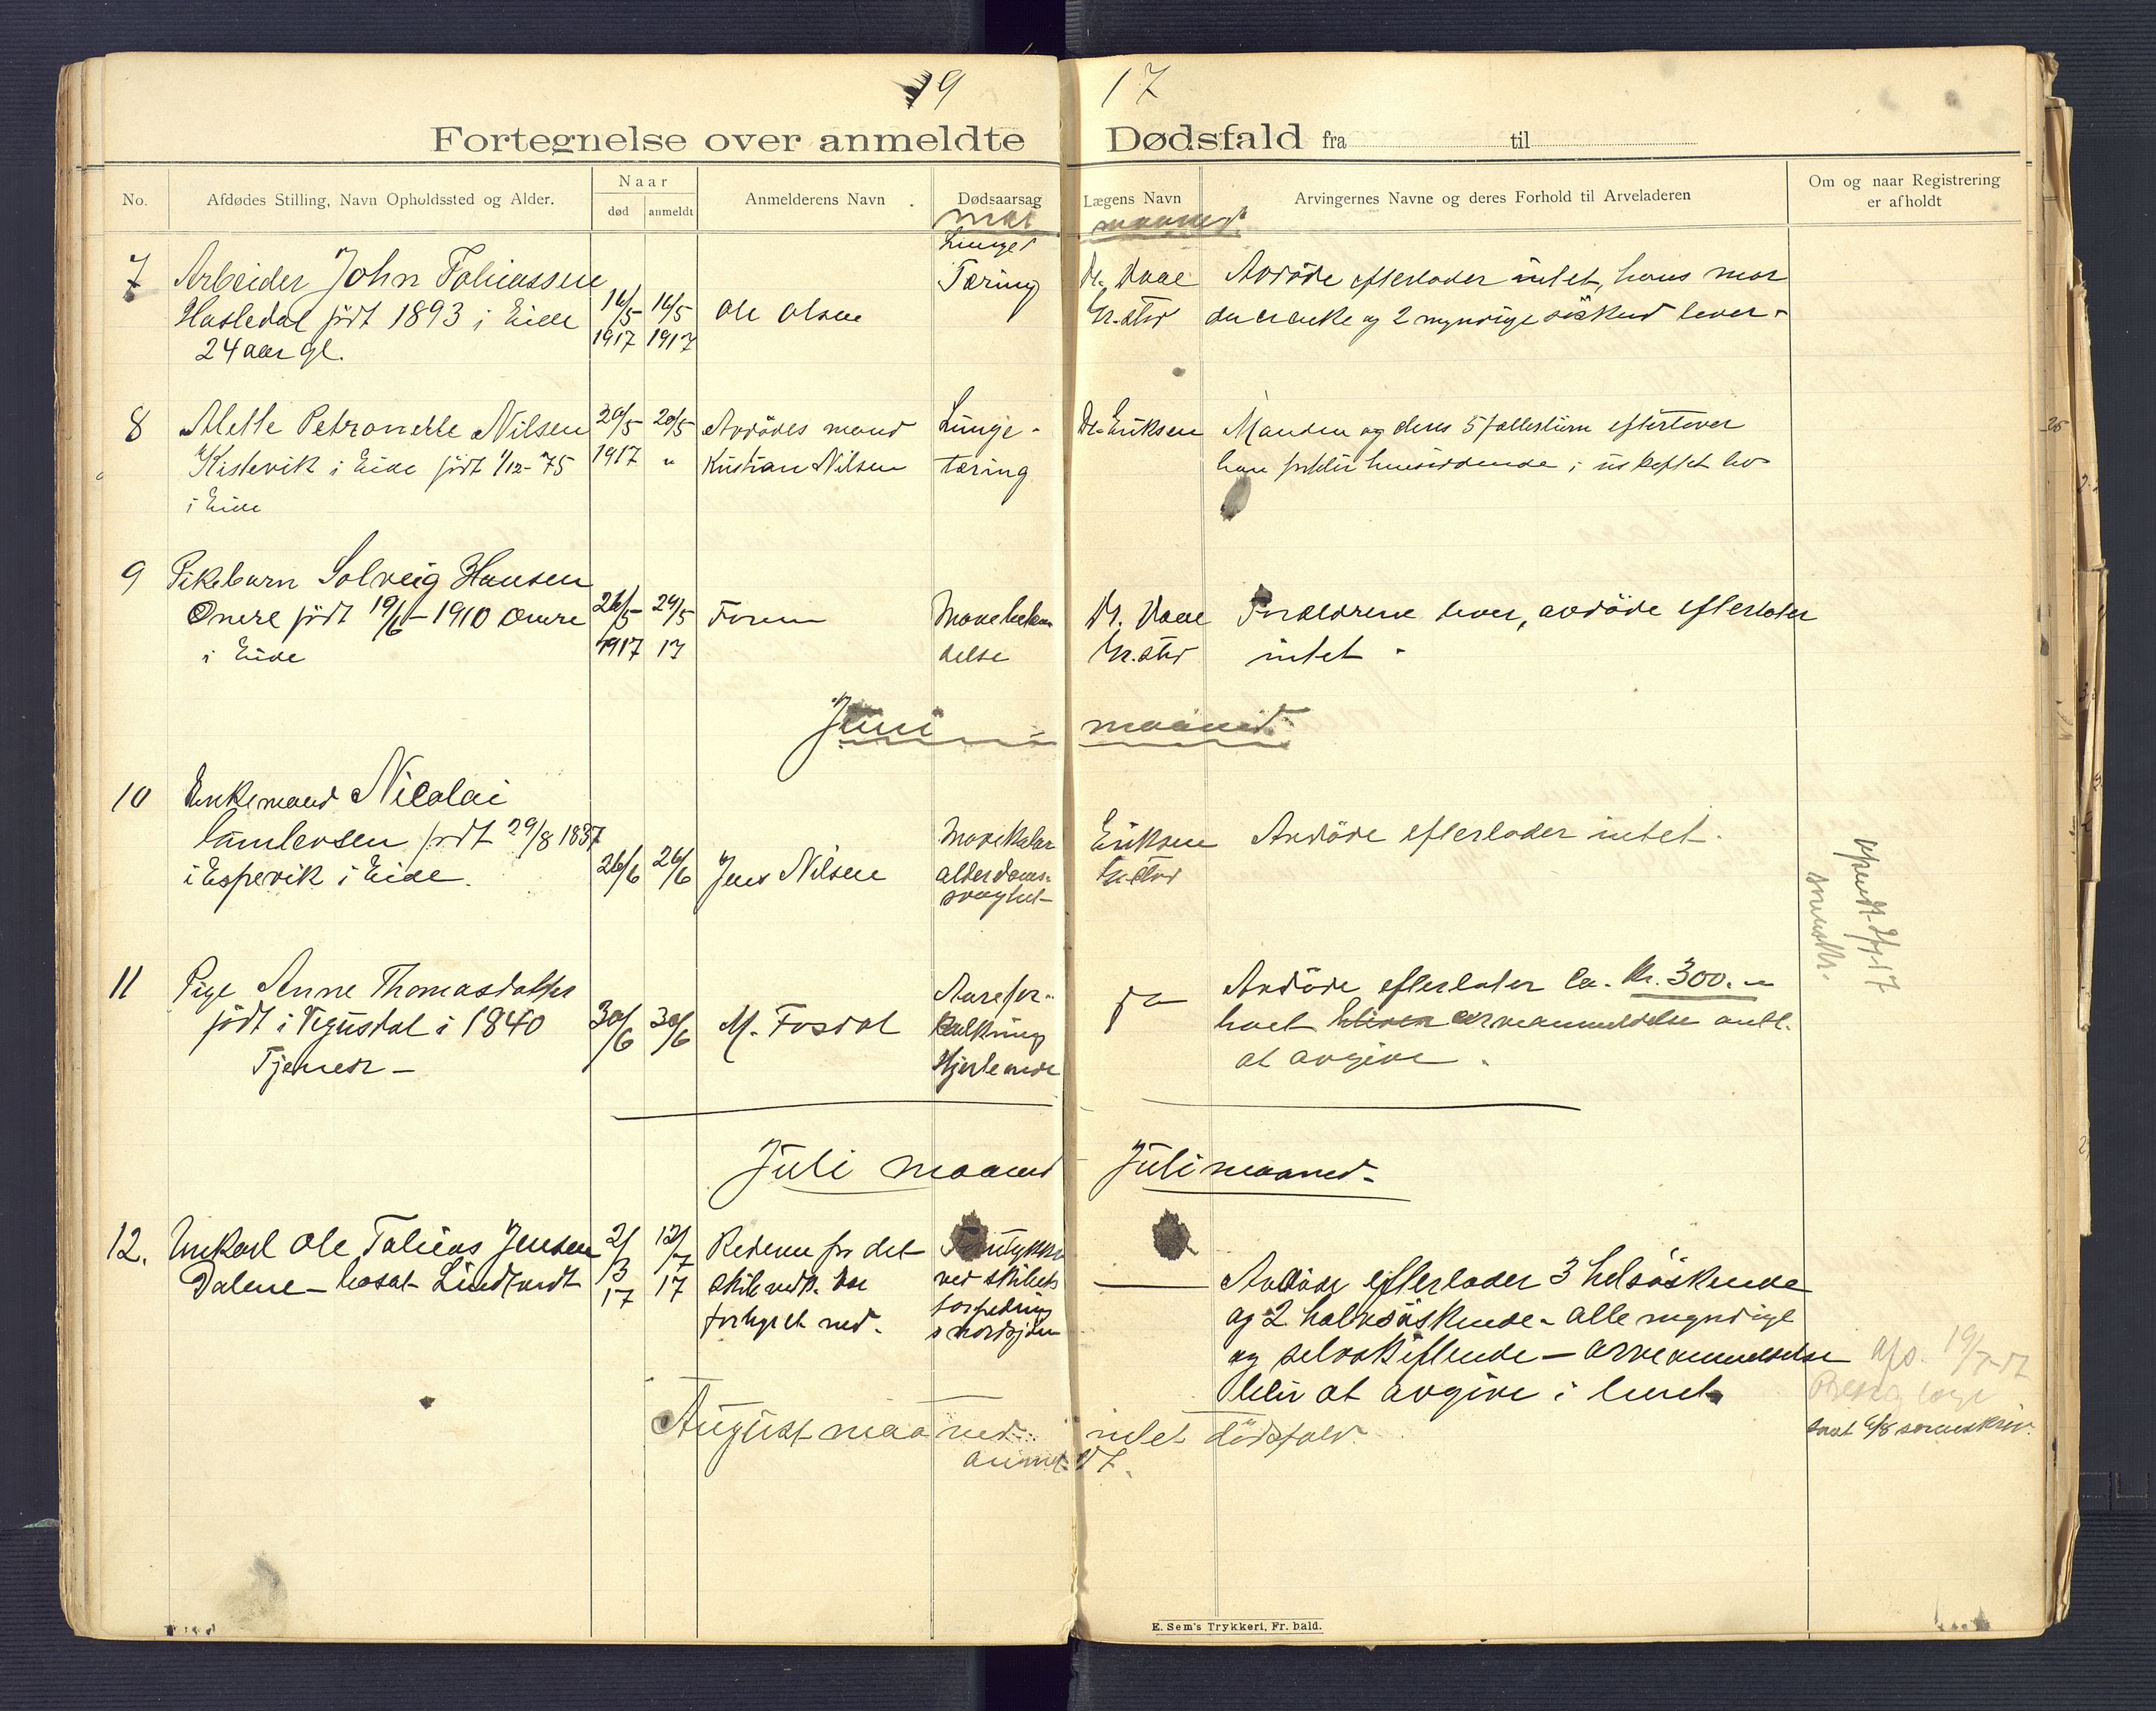 19 17
Fortegnelse over anmeldte Dødsfald fra til
No.
Afdødes Stilling, Navn Opholdssted og Alder.
Naar
død
anmeldt
Anmelderens Navn
Dødsaarsag
Lægens Navn
Arvingernes Navne og deres Forhold til Arveladeren
Om og naar Registrering
er afholdt
mai maaned
7
Arbeider John Tobiassen
Hasledal født 1893 i Eide
24 aar gl.
16/5 16/5
1917 1917
Ole Olsen
Lunge
Tæring
Dr. Vaae
Gr.stad
Avdøde efterlader intet, hans mor
der er enke og 2 myndige søskend lever.
8
Alette Petronelle Nilsen
Kistevik i Eide født 1/12-75
i Eide
20/5 20/5
1917 "
Avdødes mand
Kristian Nilsen
Lunge-
tæring
Dr. Eriksen
Manden og deres 5 fællesbørn efterlever
han forblir hensiddende i uskiftet bo
9
Pikebarn Solveig Hansen
Omre født 19/6-1910 Omre
i Eide
26/5 29/5
1917 17
Faren
delse
Dr. Vaae
Gr.stad
Forældrene lever, avdøde efterlater
intet.
Juni maaned.
10
Enkemand Nicolai
Gundersen født 29/8 1837
i Espevik i Eide.
26/6 26/6
Jens Nilsen
Mavekatar
alderdoms-
svaghet
Eriksen
Gr.stad
Avdøde efterlader intet.
11
Pige Anne Thomasdatter
født i Vegusdal i 1840
Tjener -
30/6 30/6
M. Fosdal
Aarefor-
kalkning
Hjerteonde
Avdøde efterlater ca. Kr. 300.-
arveanmeldelse
at avgive.
17
Juli maaned Juli maaned.
12.
Unkarl Ole Tobias Jensen
Dalene - bosat Lindtveit
2/3 12/7
17 17
Rederne for det
forlyst med.
ved skibets
torpedring
i Nordsjøen
Avdøde efterlader 3 helsøskende
og 2 halvsøskende - alle myndige
og selvskiftende - arveanmeldelse
blir at avgive i
19/7-17
sorenskriv.
August maaned intet dødsfald
anmeldt.
E. Sem's Trykkeri, Fr. hald.